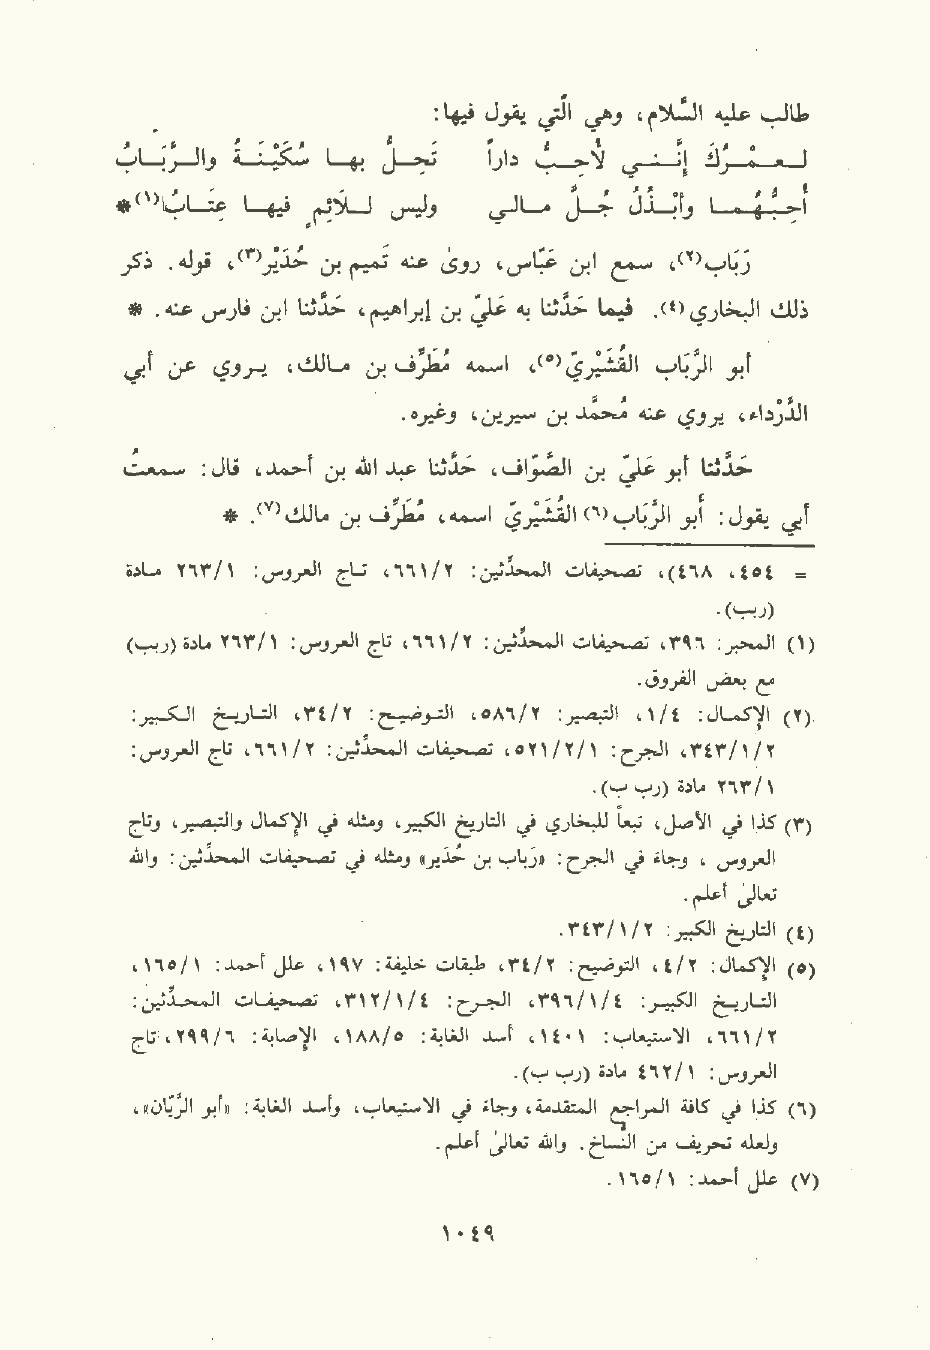 طالب عليه السَّلام، وهي الَّتي يقول فيها:
لـعـمْـرُكَ إنَّنـي لأحِـبُّ داراً تَحِـلُّ بهـا سُكَيْنَـةُ والـرَّبَـابُ
أحِـبُّهُـمـا وأبْـذُلُ جُـلَّ مـالـي وليس لـلائِمٍ فيهـا عِتَـابُ(١)*
رَبَاب(٢)، سمع ابن عَبَّاس، روىٰ عنه تميم بن حُدَيْر(٣)، قوله. ذكر
ذلك البخاري(٤). فيما حَدَّثنا به عَليّ بن إبراهيم، حَدَّثنا ابن فارس عنه. *
أبو الرَّبَاب القُشَيْريّ(٥)، اسمه مُطَرِّف بن مـالك، يـروي عن أبي
الدَّرْداء، يروي عنه مُحمَّد بن سيرين، وغيره.
حَدَّثنا أبو عَليّ بن الصَّوَّاف، حَدَّثنا عبد الله بن أحمد، قال: سمعتُ
أبي يقول: أبو الرَّبَاب(٦) القُشَيْريّ اسمه، مُطَرِّف بن مالك(٧). *
= ٤٥٤، ٤٦٨)، تصحيفات المحدّثين: ٦٦١/٢، تـاج العروس: ٢٦٣/١ مـادة
(ربب).
(١) المحبر: ٣٩٦، تصحيفات المحدّثين: ٦٦١/٢، تاج العروس: ٢٦٣/١ مادة (ربب)
مع بعض الفروق.
(٢) الإكمـال: ١/٤، التبصير: ٥٨٦/٢، التـوضيـح: ٣٤/٢، التـاريـخ الكـبيـر:
٣٤٣/١/٢، الجرح: ٥٢١/٢/١، تصحيفات المحدّثين: ٦٦١/٢، تاج العروس:
٢٦٣/١ مادة (رب ب).
(٣) كذا في الأصل، تبعاً للبخاري في التاريخ الكبير، ومثله في الإكمال والتبصير، وتاج
العروس، وجاء في الجرح: «رَباب بن حُدَير» ومثله في تصحيفات المحدّثين: والله
تعالىٰ أعلم.
(٤) التاريخ الكبير: ٣٤٣/١/٢.
(٥) الإكمال: ٤/٢، التوضيح: ٣٤/٢، طبقات خليفة: ١٩٧، علل أحمد: ١٦٥/١،
التـاريـخ الكبيـر: ٣٩٦/١/٤، الجـرح: ٣١٢/١/٤، تصحيفـات المحـدّثين:
٦٦١/٢، الاستيعاب: ١٤٠١، أسد الغابة: ١٨٨/٥، الإصابة: ٢٩٩/٦، تاج
العروس: ٤٦٢/١ مادة (رب ب).
(٦) كذا في كافة المراجع المتقدمة، وجاء في الاستيعاب، وأسد الغابة: «أبو الرَّيَّان»،
ولعله تحريف من النُّساخ. والله تعالىٰ أعلم.
(٧) علل أحمد: ١٦٥/١.
١٠٤٩